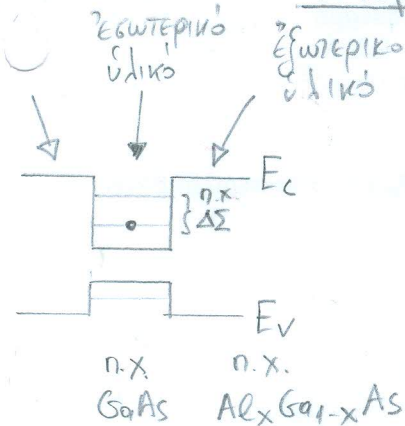 ἐσωτερικό
ὑλικό
ἐξωτερικό
ὑλικό
Ec
π.χ.
ΔΣ
Ev
π.χ.
GaAs
π.χ.
AlxGa1-xAs